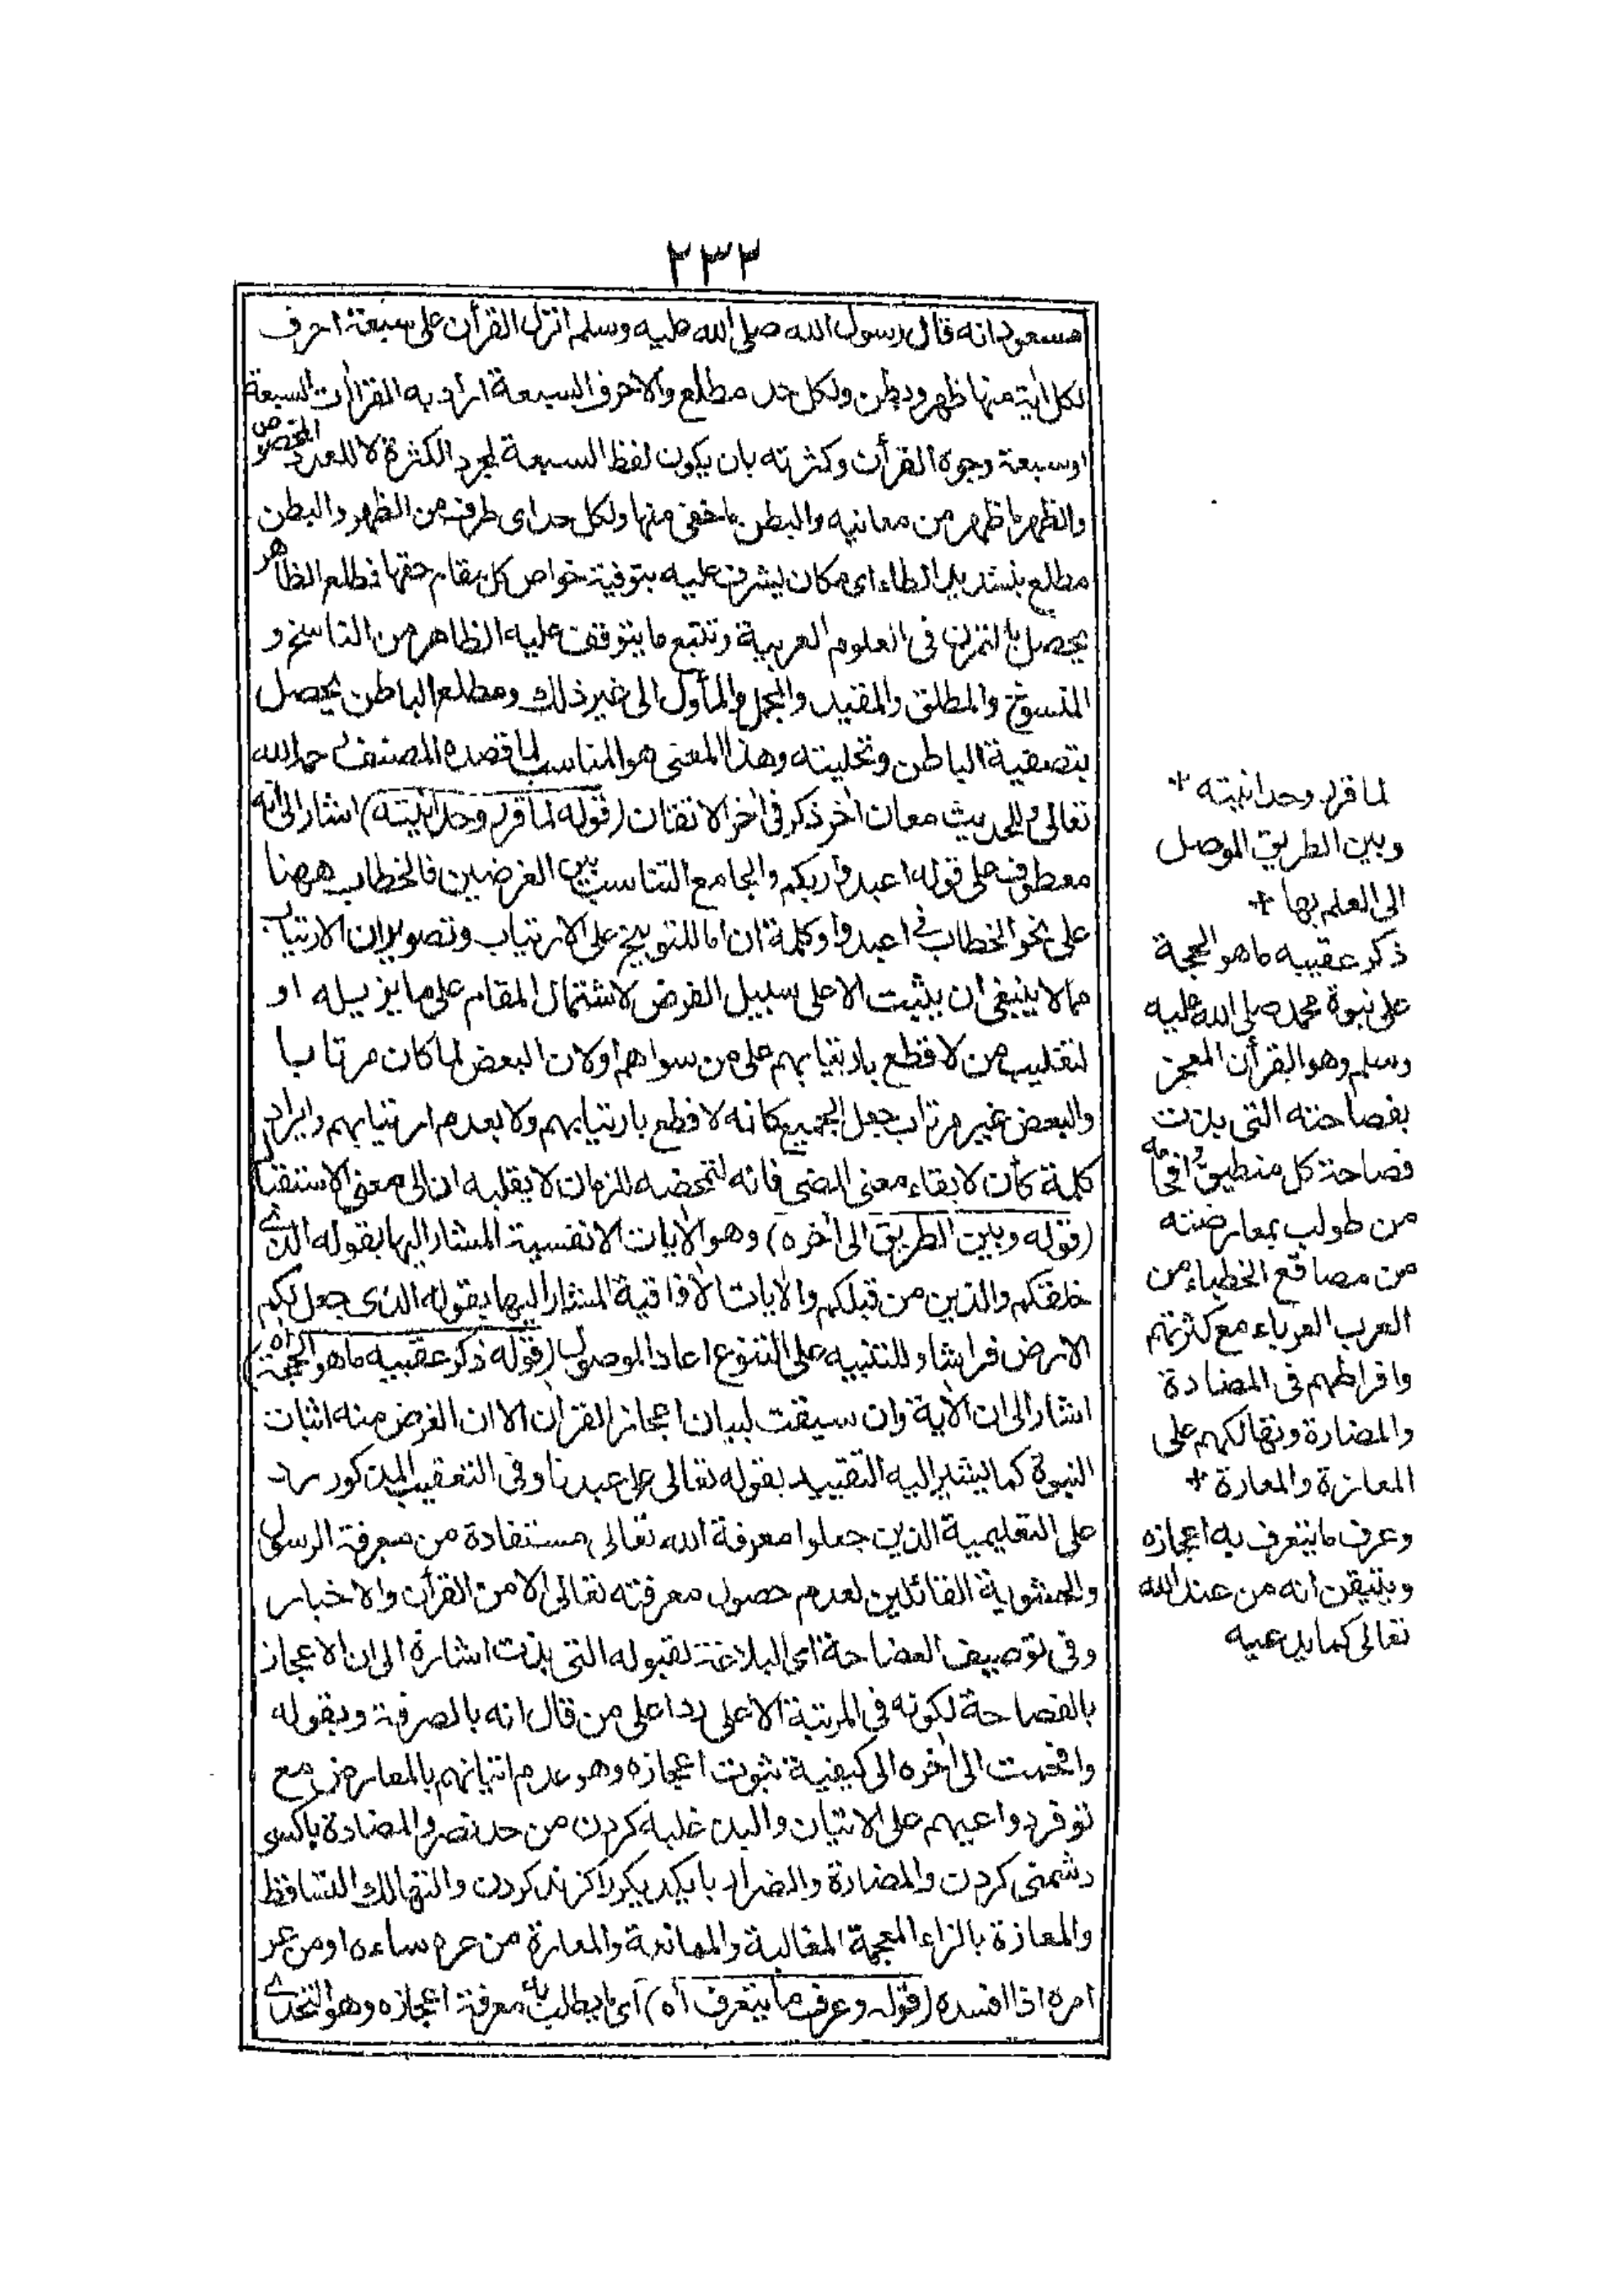 ٢٣٢
مسعود انه قال رسول الله صلى الله عليه وسلم انزل القرأن على سبعة احرف
لكل أية منها ظهر وبطن ولكل حد مطلع والاحرف السبعة اراد به القرأت السبعة
اوسبعة وجوه القرأن وكثرته بان يكون لفظ السبعة لمجرد الكثرة لا للعدد المخصوص
والظهر ما ظهر من معانيه والبطن ما خفى منها ولكل حد اى طرف من الظهر والبطن
مطلع بتشديد الطاء اى مكان يشرف عليه بتوفية خواص كل مقام حقها فمطلع الظاهر
يحصل بالتمرن فى العلوم العربية وتتبع ما يتوقف عليه الظاهر من الناسخ و
المنسوخ والمطلق والمقيد والمجمل والمأول الى غير ذلك ومطلع الباطن يحصل
بتصفية الباطن وتحليته وهذا المعنى هو المناسب لما قصده المصنف رحمه الله
تعالى وللحديث معان أخر ذكر فى أخر الاتقان (قوله لما قرر وحدانيته) اشار الى انه
معطوف على قوله اعبدوا ربكم والجامع التناسب بين الغرضين فالخطاب ههنا
على نحو الخطاب فى اعبدوا وكلمة ان اما للتوبيخ على الارتياب وتصوير ان الارتياب
مما لا ينبغى ان يثبت الا على سبيل الفرض لاشتمال المقام على ما يزيله او
لتغليب من لا قطع بارتيابهم على من سواهم اولان البعض لما كان مرتابا
والبعض غير مرتاب جعل الجميع كانه لا قطع بارتيابهم ولا بعدم ارتيابهم وايراد
كلمة كأن لابقاء معنى المضى فانه لتمحضه للزمان لا يقلبه ان الى معنى الاستقبال
(قوله وبين الطريق الى أخره) وهو الأيات الانفسية المشار اليها بقوله الذى
خلقكم والذين من قبلكم والأيات الأفاقية المشار اليها بقوله الذى جعل لكم
الارض فراشا وللتنبيه على التنوع اعاد الموصول (قوله ذكر عقيبه ما هو الحجة اه)
اشار الى ان الأية وان سيقت لبيان اعجاز القرأن الا ان الغرض منه اثبات
النبوة كما يشير اليه التقييد بقوله تعالى على عبدنا وفى التعقيب المذكور رد
على التعليمية الذين جعلوا معرفة الله تعالى مستفادة من معرفة الرسول
والحشوية القائلين لعدم حصول معرفته تعالى الا من القرأن والاخبار
وفى توصيف الفصاحة اى البلاغة لقبوله التى بذت اشارة الى ان الاعجاز
بالفصاحة لكونه فى المرتبة الاعلى ردا على من قال انه بالصرفة وبقوله
وافحمت الى أخره الى كيفية ثبوت اعجازه وهو عدم اتيانهم بالمعارض مع
توفر دواعيهم على الاتيان والبذ غلبه كردن من حد نصر والمضادة باكسى
دشمنى كردن والمضارة والضرار بايكديكر را كزند كردن والتهالك التساقط
والمعازة بالزاء المعجمة المغالبة والمعاندة والمعارة من عره ساءه اومن عر
امره اذا افسده (قوله وعرف ما يتعرف أه) اى ما يطلب به معرفة اعجازه وهو التحدى
لما قرر وحدانيته *
وبين الطريق الموصل
الى العلم بها *
ذكر عقيبه ما هو الحجة
على نبوة محمد صلى الله عليه
وسلم وهو القرأن المعجز
بفصاحته التى بذت
فصاحة كل منطيق وافحامه
من طولب بمعارضته
من مصاقع الخطباء من
العرب العرباء مع كثرتهم
وافراطهم فى المضادة
والمضارة وتهالكهم على
المعازة والمعارة *
وعرف ما يتعرف به اعجازه
ويتيقن انه من عند الله
تعالى كما يدعيه